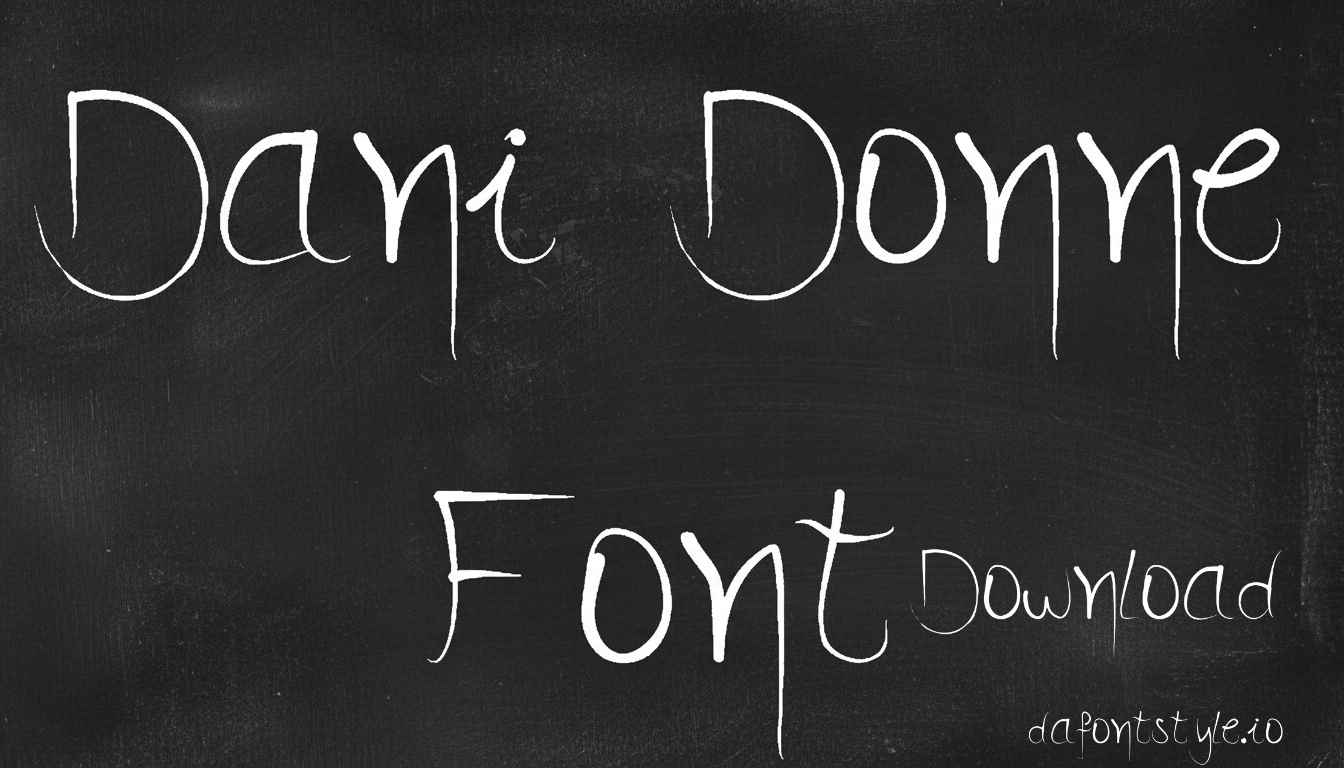 Dani Donne
Font Download
dafontstyle.io